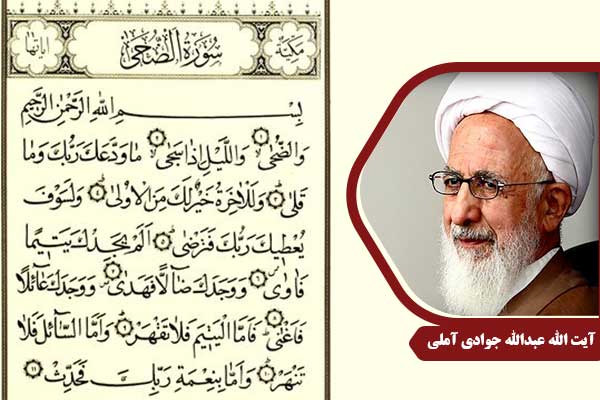 مكية
سُورَةُ الضُّحَىٰ
آياتها
بِسْمِ اللهِ الرَّحْمٰنِ الرَّحِيمِ
وَالضُّحٰى ۱ وَاللَّيْلِ اِذَا سَجٰى ۲ مَا وَدَّعَكَ رَبُّكَ وَمَا
قَلٰى ۳ وَلَلْاٰخِرَةُ خَيْرٌ لَكَ مِنَ الْاُولٰى ۴ وَلَسَوْفَ
يُعْطِيكَ رَبُّكَ فَتَرْضٰى ۵ اَلَمْ يَجِدْكَ يَتِيمًا
فَاٰوٰى ۶ وَوَجَدَكَ ضَآلًّا فَهَدٰى ۷ وَوَجَدَكَ عَآئِلًا
فَاَغْنٰى ۸ فَاَمَّا الْيَتِيمَ فَلَا تَقْهَرْ ۹ وَاَمَّا السَّآئِلَ فَلَا
تَنْهَرْ ۱۰ وَاَمَّا بِنِعْمَةِ رَبِّكَ فَحَدِّثْ ۱۱
آیت الله عبدالله جوادی آملی